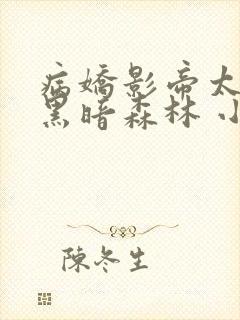 病嬌影帝太
黑暗森林 小
陳冬生